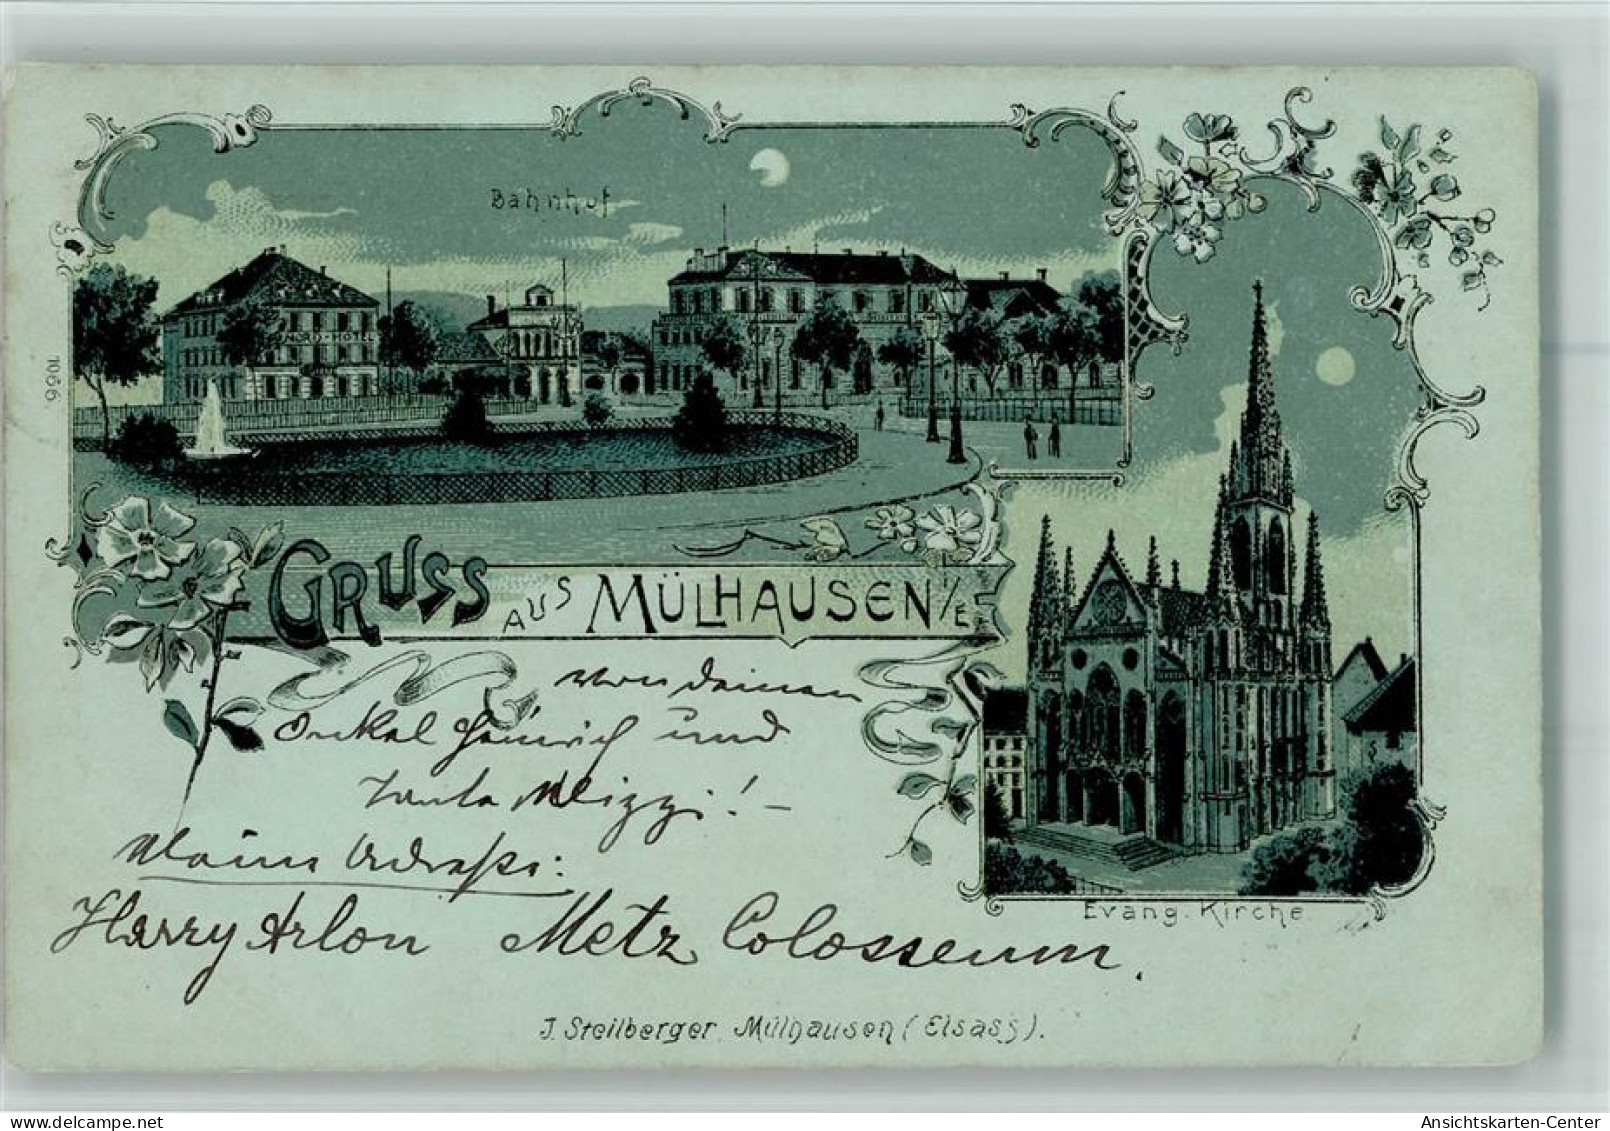 Bahnhof
NORD-HOTEL
1066.
GRUSS AUS MÜLHAUSEN I/E
von deinen
Onkel Heinrich und
Tante Mizzi! –
Meine Adresse:
Harry Arlon Metz Colosseum.
Evang. Kirche
J. Steilberger, Mülhausen (Elsass).
Ansichtskarten-Center